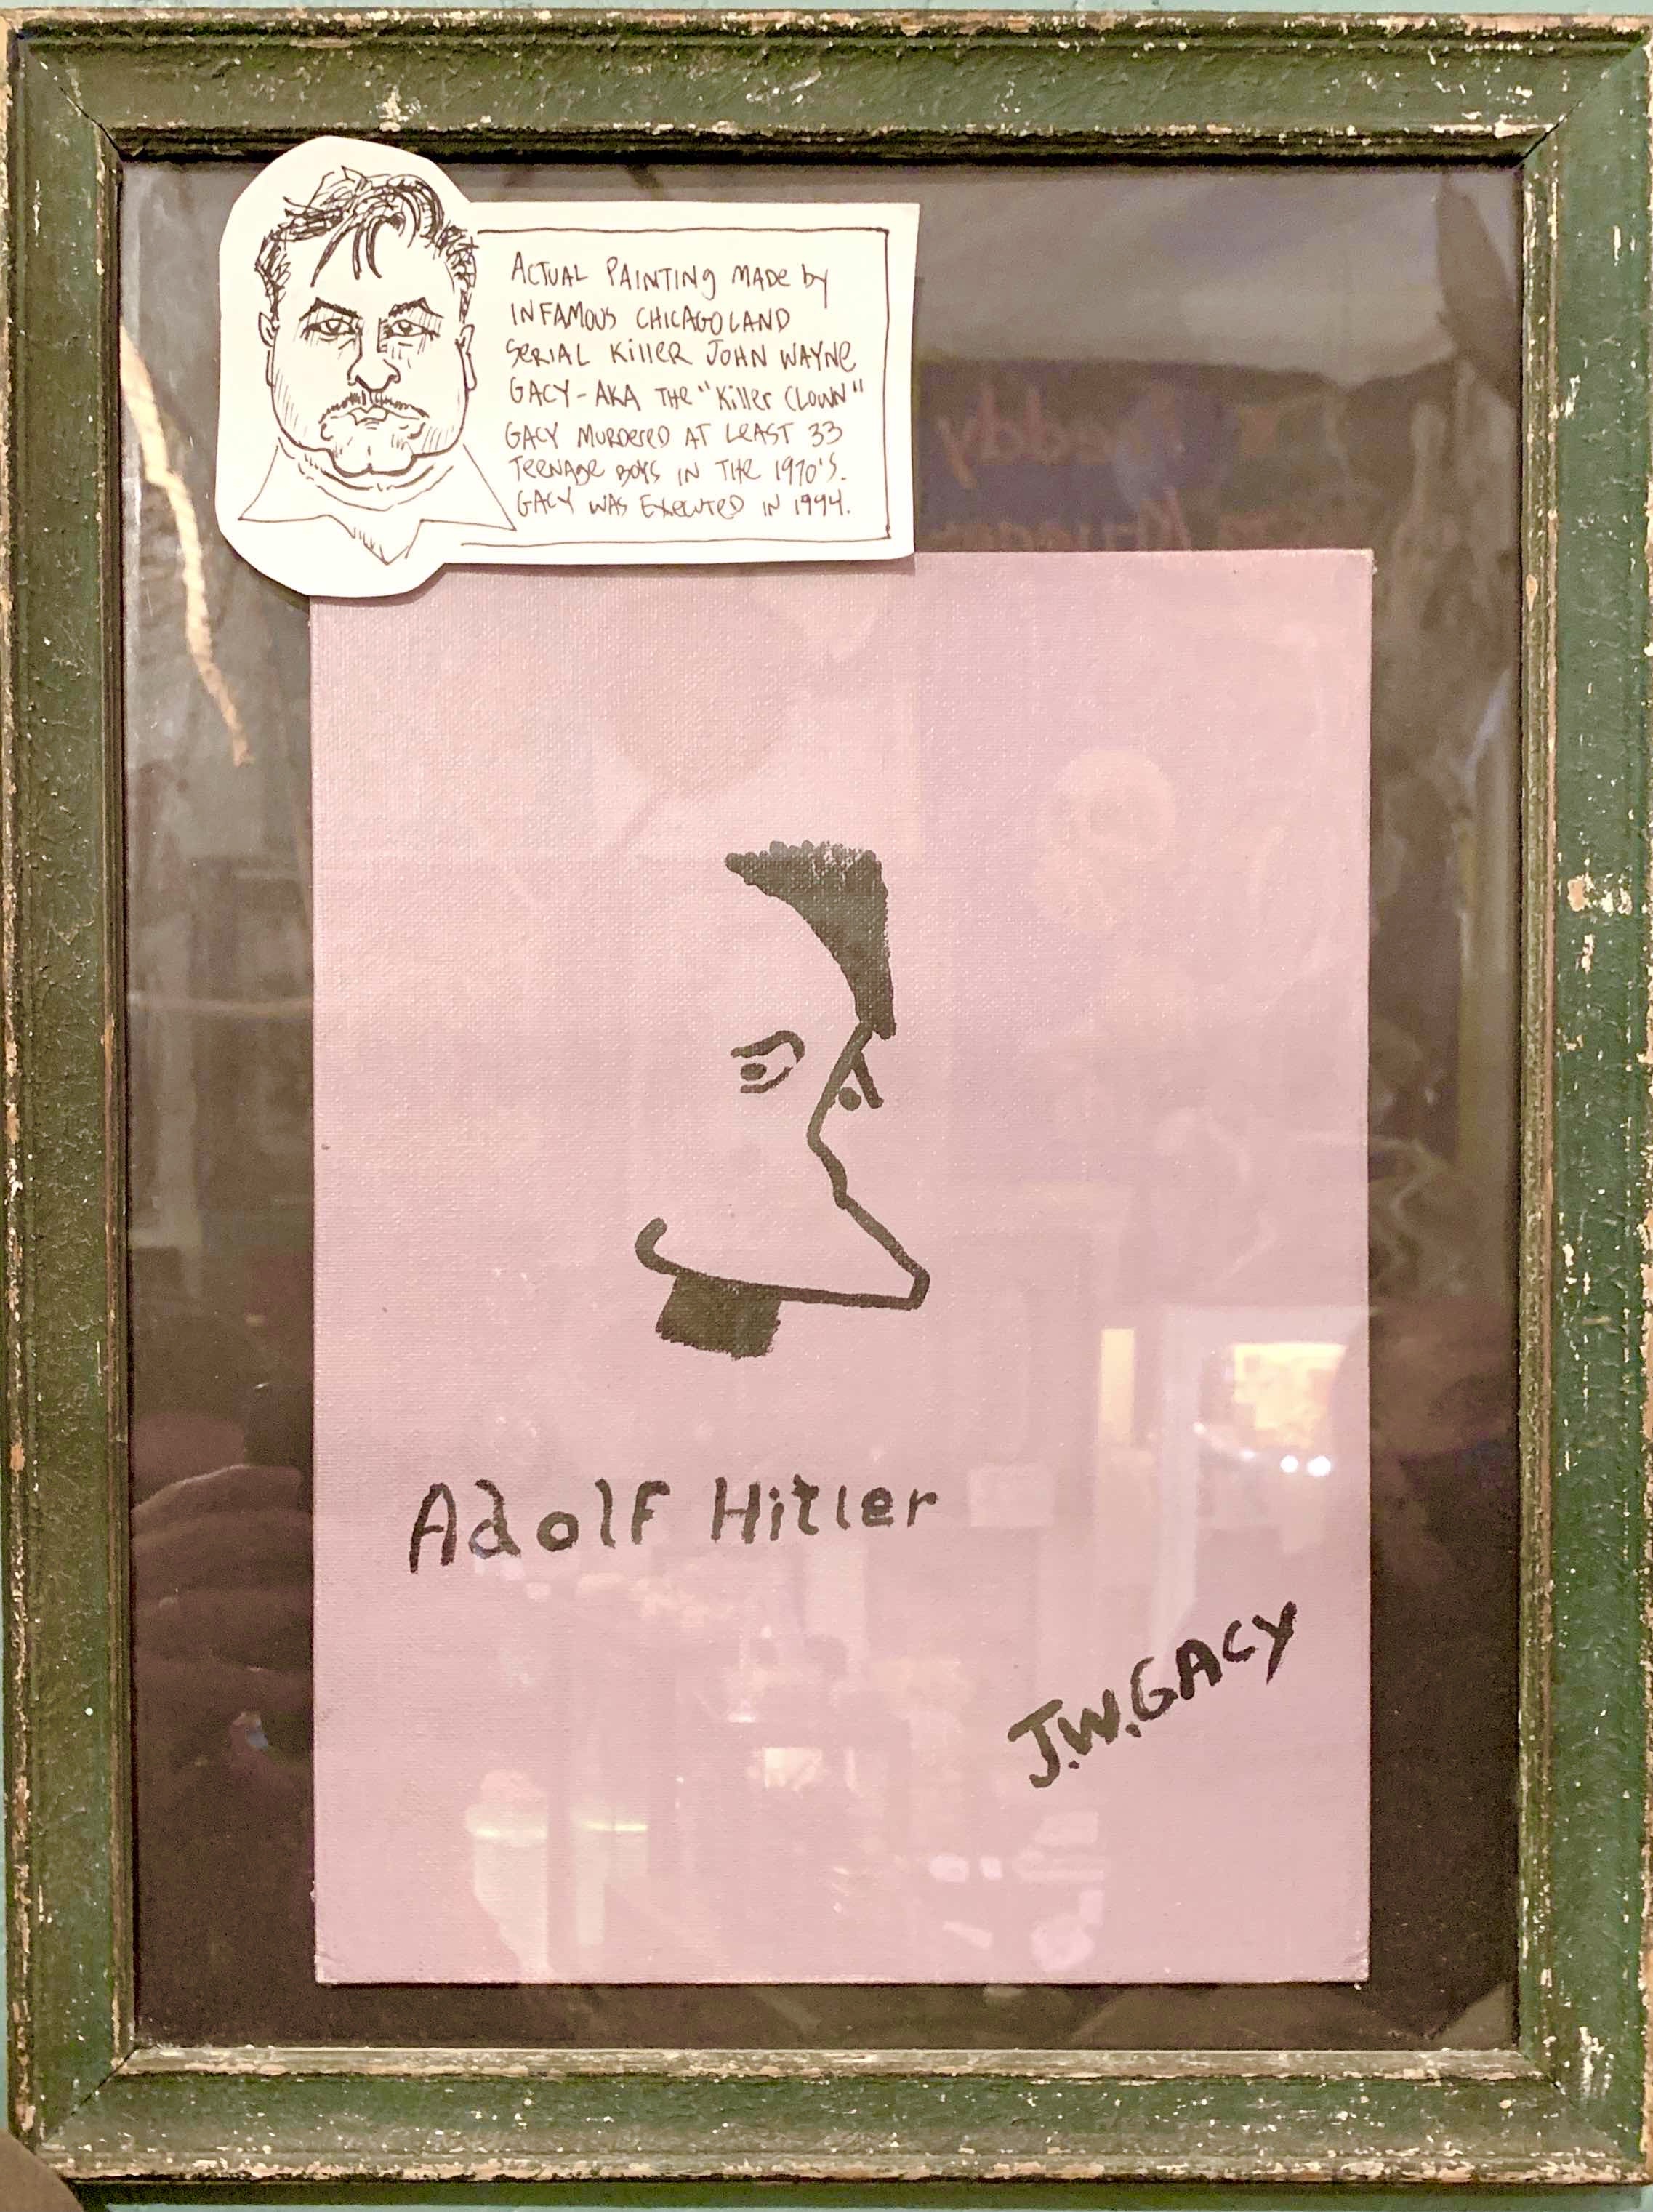 ACTUAL PAINTING MADE by
INFAMOUS CHICAGOLAND
SERIAL KILLER JOHN WAYNE
GACY-AKA THE "Killer CLOWN"
GACY MURDERED AT LEAST 33
TEENAGE BOYS IN THE 1970'S.
GACY WAS EXECUTED IN 1994.
Adolf Hitler
J.W.GACY